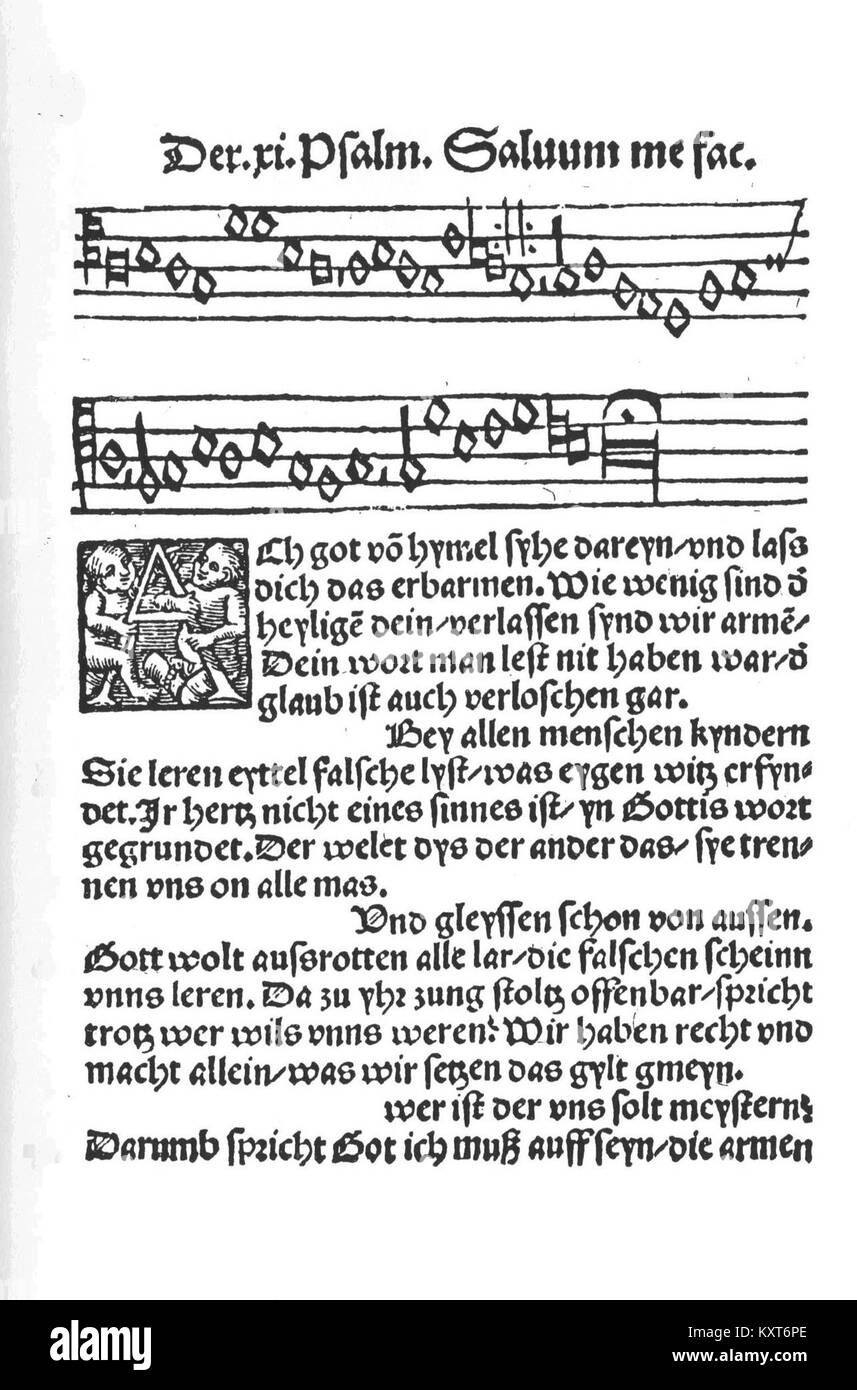 Der.xi.Psalm. Saluum me fac.
ACh got võ hymel syhe dareyn/vnd lass
dich das erbarmen.Wie wenig sind d̄
heyligẽ dein/verlassen synd wir armẽ/
Dein wort man lest nit haben war/d̄
glaub ist auch verloschen gar.
Bey allen menschen kyndern
Sie leren eyttel falsche lyst/was eygen witz erfyn⸗
det.Jr hertz nicht eines sinnes ist/yn Gottis wort
gegrundet.Der welet dys der ander das/ sye tren⸗
nen vns on alle mas.
Vnd gleyssen schon von aussen.
Gott wolt aussrotten alle lar/die falschen scheinn
vnns leren. Da zu yhr zung stoltz offenbar/spricht
trotz wer wils vnns weren? Wir haben recht vnd
macht allein/was wir setzen das gylt gmeyn.
wer ist der vns solt meystern?
Darumb spricht Got ich muß auff seyn/die armen
alamy
Image ID: KXT6PE
www.alamy.com